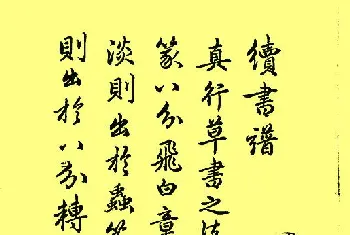 續書譜
真行草書之法
篆八分飛白章
淡則出於蟲篆
則出於八分轉